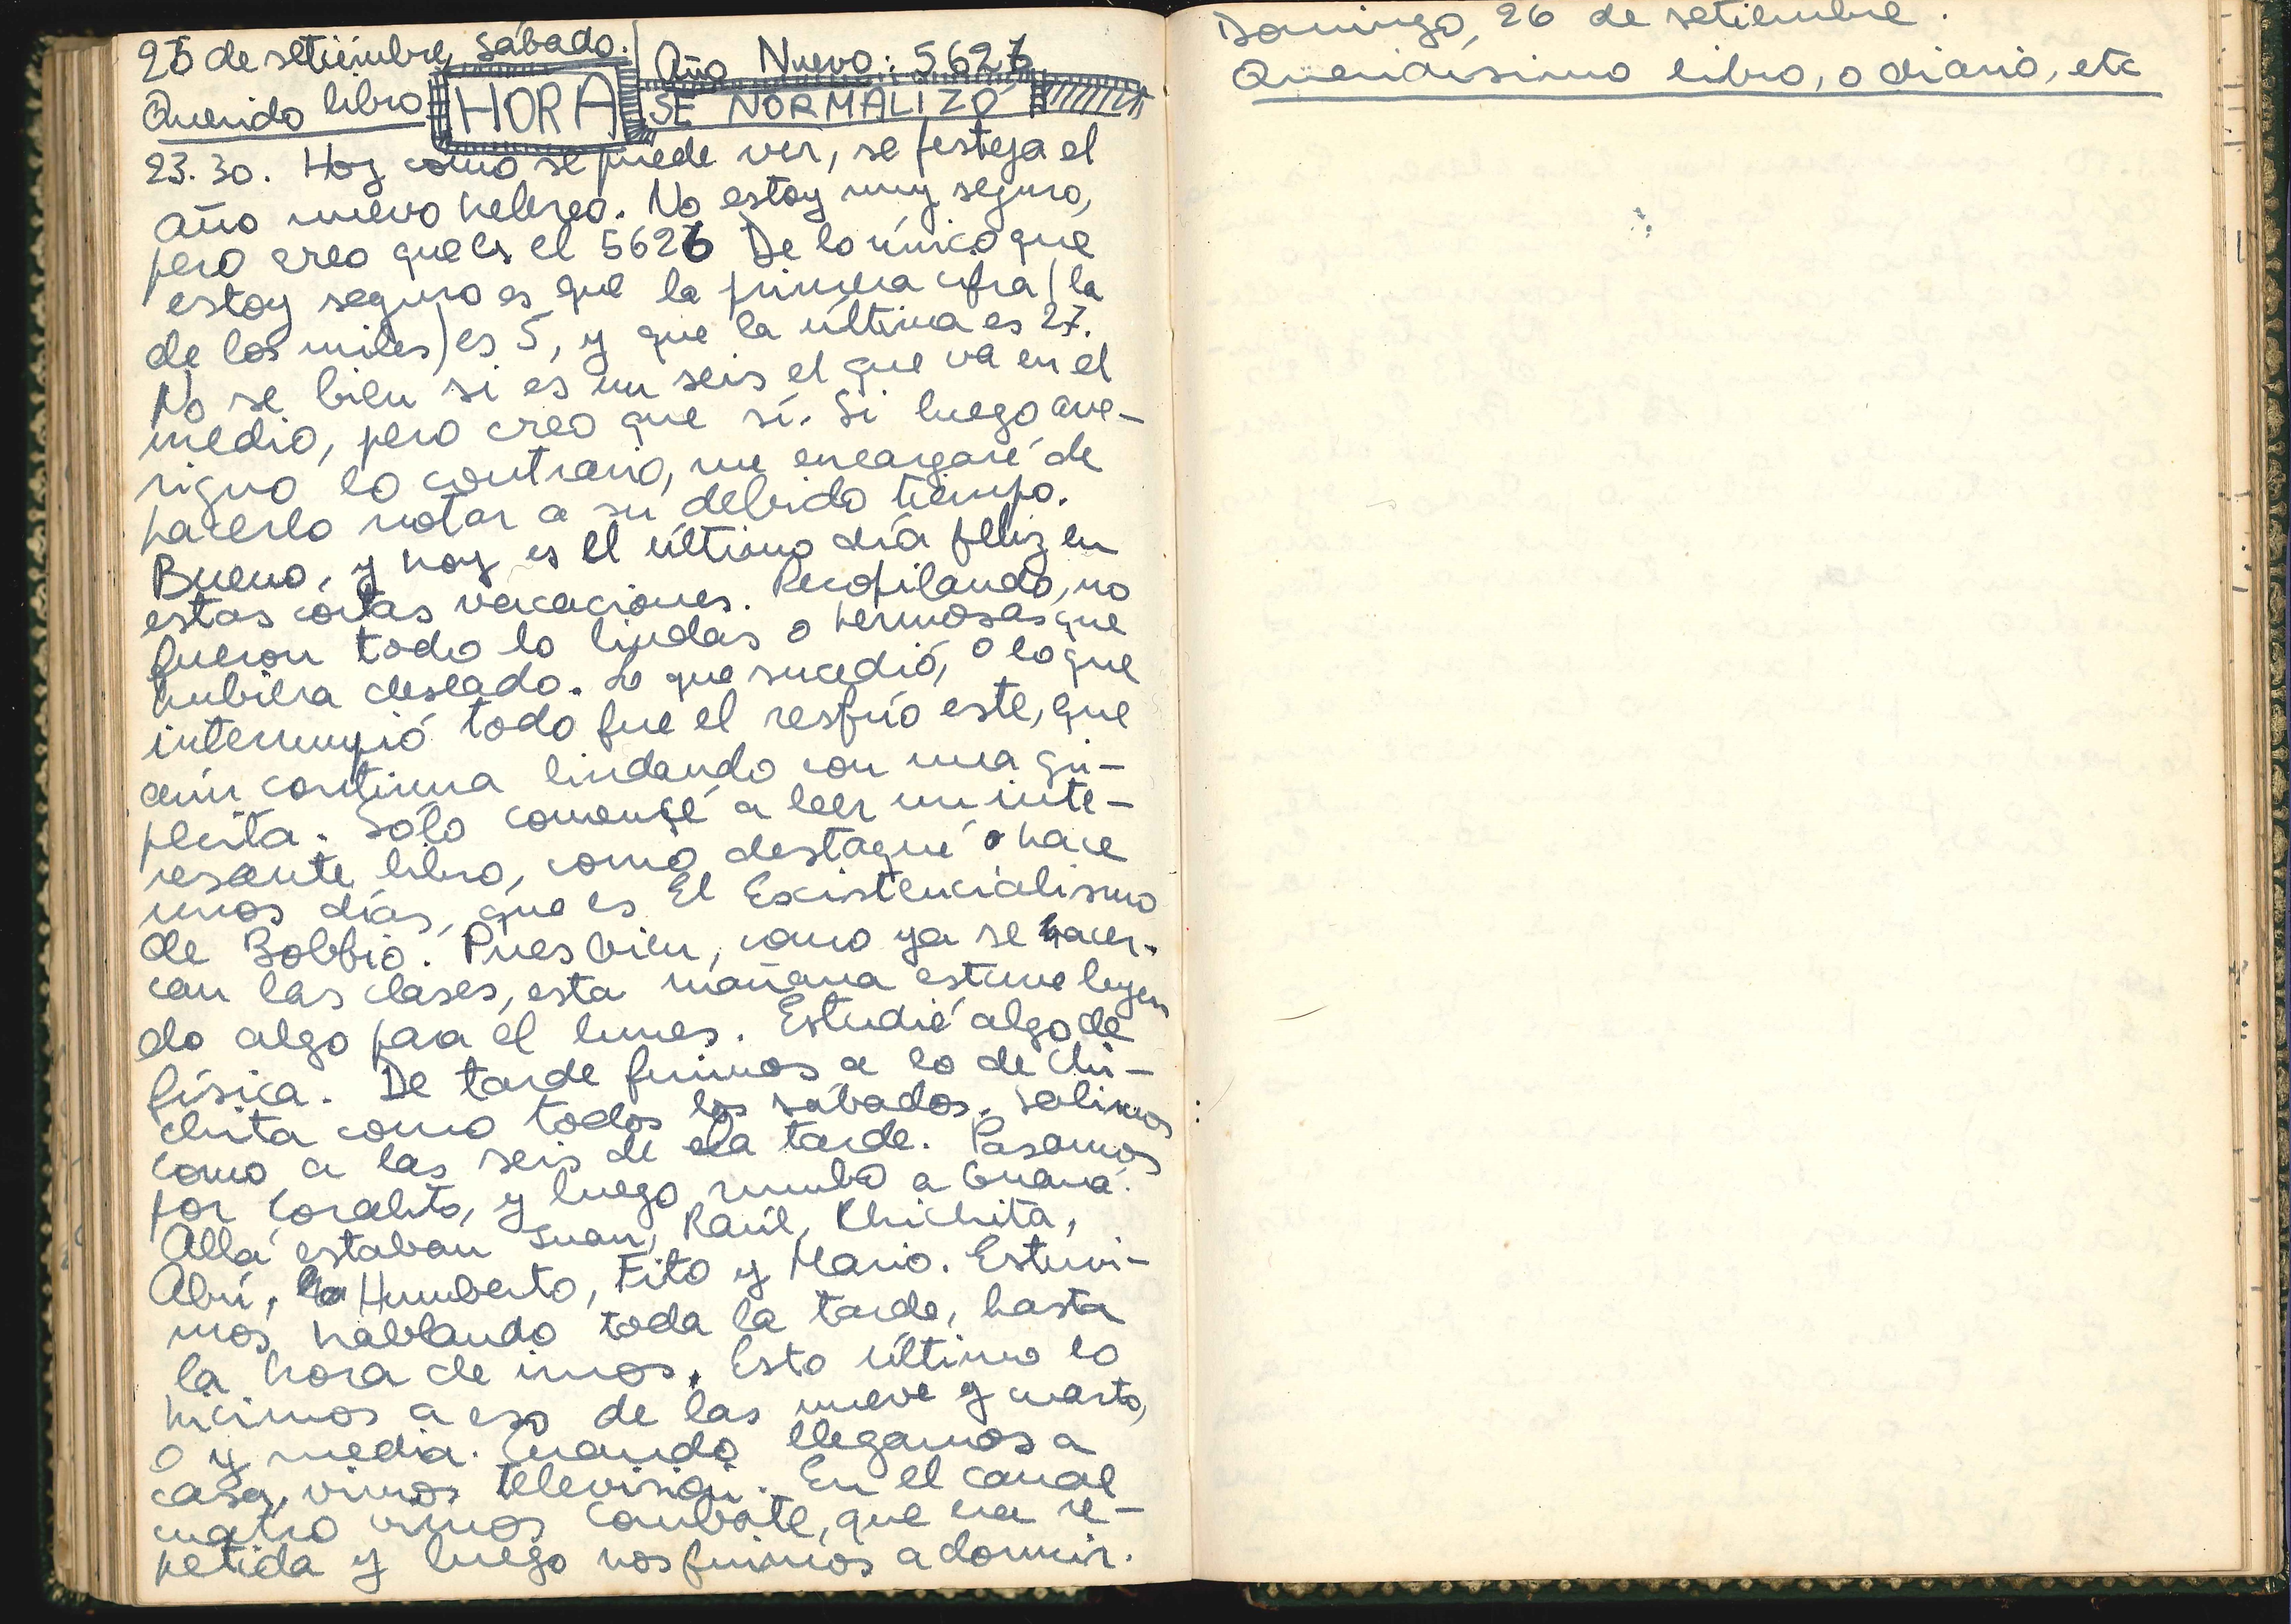 25 de setiembre, sábado.
Año Nuevo: 5627
Querido libro
HORA
SE NORMALIZÓ
23.30. Hoy como se puede ver, se festeja el
año nuevo hebreo. No estoy muy seguro,
pero creo que es el 5626 De lo único que
estoy seguro es que la primera cifra (la
de los miles) es 5, y que la última es 27.
No se bien si es un seis el que va en el
medio, pero creo que sí. Si luego ave-
riguo lo contrario, me encargaré de
hacerlo notar a su debido tiempo.
Bueno, y hoy es el último día feliz en
estas cortas vacaciones. Recopilando, no
fueron todo lo lindas o hermosas que
hubiera deseado. Lo que sucedió, o lo que
interrumpió todo fue el resfrío este, que
aún continua lindando con una gri-
pecita. Sólo comensé a leer un inte-
resante libro, como destaqué hace
unos días, que es El Existencialismo
de Bobbio. Pues bien, como ya se hacer-
can las clases, esta mañana estuve leyen
do algo para el lunes. Estudié algo de
física. De tarde fuimos a lo de Chi-
chita como todos los sábados. Salimos
como a las seis de la tarde. Pasamos
por Coralito, y luego rumbo a Guaná.
Allá estaban Juan, Raúl, Chichita,
Abú, Humberto, Fito y Mario. Estuvi-
mos hablando toda la tarde, hasta
la hora de irnos. Esto último lo
hicimos a eso de las nueve y cuarto,
o y media. Cuando llegamos a
casa, vimos televisión. En el canal
cuatro vimos Combate, que era re-
petida y luego nos fuimos a dormir.
Domingo, 26 de setiembre.
Queridísimo libro, o diario, etc